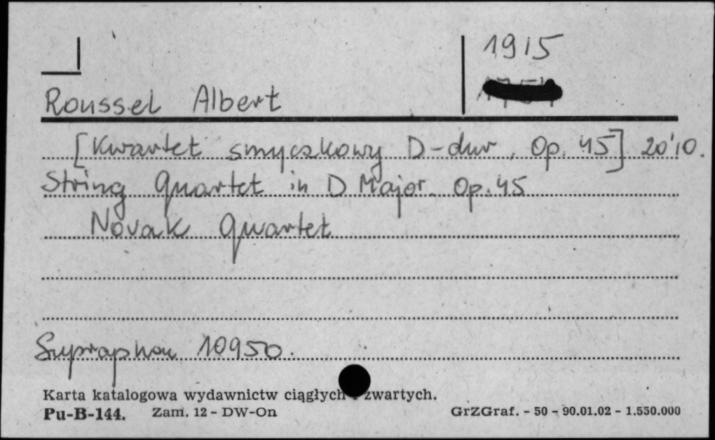 1915
Roussel Albert
[Kwartet smyczkowy D-dur, Op. 45] 20'10.
String Quartet in D Major Op. 45
Novak Quartet
Supraphon 10950.
Karta katalogowa wydawnictw ciągłych zwartych.
Pu-B-144. Zam. 12 - DW-On GrZGraf. - 50 - 90.01.02 - 1.550.000